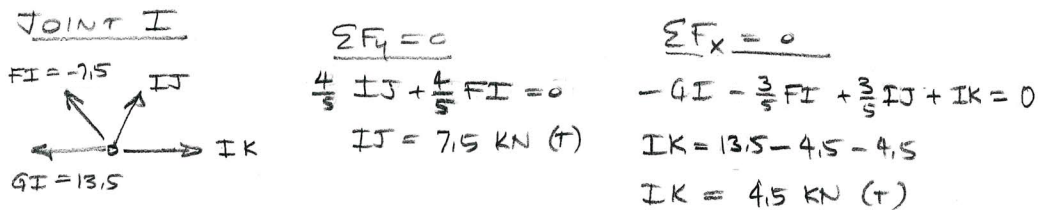 JOINT I
FI = -7,5
IJ
IK
GI = 13,5
ΣFy = 0
4/5 IJ + 4/5 FI = 0
IJ = 7,5 KN (T)
ΣFx = 0
- GI - 3/5 FI + 3/5 IJ + IK = 0
IK = 13,5 - 4,5 - 4,5
IK = 4,5 KN (T)